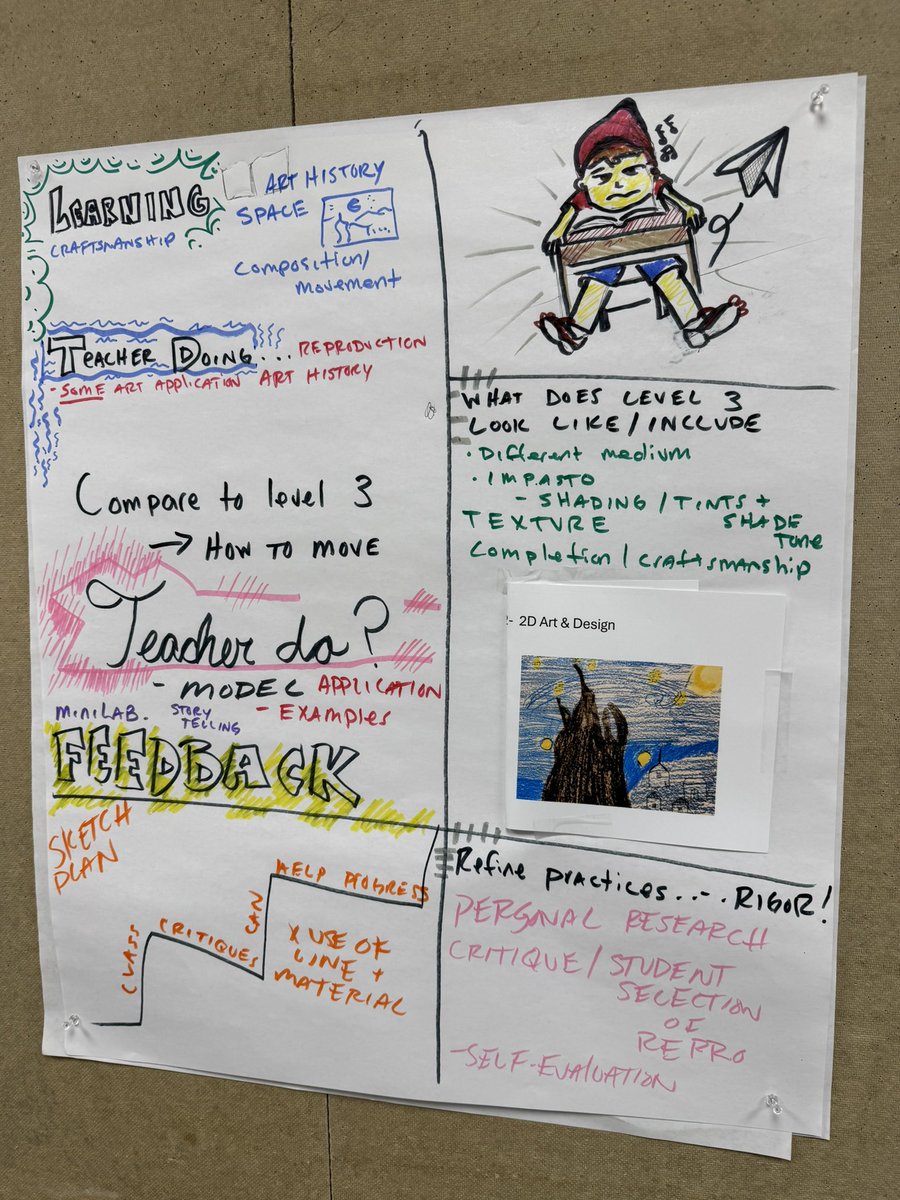 LEARNING
CRAFTSMANSHIP
ART HISTORY
SPACE
Composition/
movement
TEACHER DOING... REPRODUCTION
- SOME ART APPLICATION ART HISTORY
Compare to level 3
→ HOW TO MOVE
Teacher do?
- MODEL APPLICATION
- EXAMPLES
MINILAB. STORY
TELLING
FEEDBACK
SKETCH
PLAN
CLASS
CRITIQUES
CAN
HELP PROGRESS
X USE OF
LINE +
MATERIAL
WHAT DOES LEVEL 3
LOOK LIKE/INCLUDE
• Different medium
• IMPASTO
- SHADING/TINTS +
SHADE
TEXTURE
Tone
Completion/craftsmanship
2- 2D Art & Design
Refine practices..-. RIGOR!
PERSONAL RESEARCH
CRITIQUE/STUDENT
SELECTION
OF
REPRO
-SELF-EVALUATION